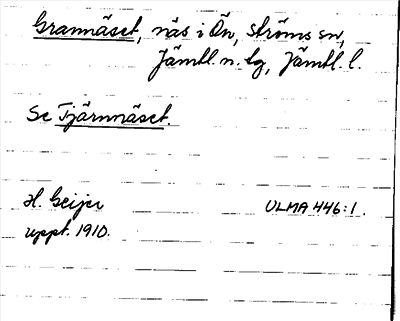 Grannäset, näs i Ön, Ströms sn,
Jämtl. n. tg, Jämtl. l.
Se Tjärnnäset.
H. Geijer ULMA 446:1.
uppt. 1910.